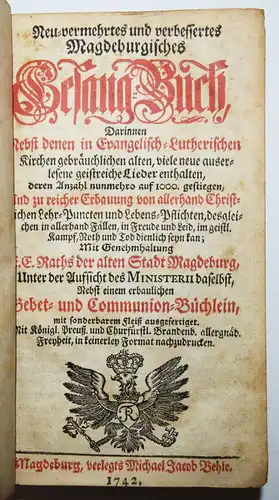 Neu-vermehrtes und verbessertes
Magdeburgisches
Gesang Buch,
Darinnen
Nebst denen in Evangelisch-Lutherischen
Kirchen gebräuchlichen alten, viele neue auser-
lesene geistreiche Lieder enthalten,
deren Anzahl nunmehro auf 1000. gestiegen,
Und zu reicher Erbauung von allerhand Christ-
lichen Lehr-Puncten und Lebens-Pflichten, desglei-
chen in allerhand Fällen, in Freude und Leid, im geistl.
Kampf, Noth und Tod dienlich seyn kan;
Mit Genehmhaltung
E.E. Raths der alten Stadt Magdeburg,
Unter der Aufsicht des MINISTERII daselbst,
Nebst einem erbaulichen
Gebet- und Communion-Büchlein,
mit sonderbarem Fleiß ausgefertiget.
Mit Königl. Preuß. und Churfürstl. Brandenb. allergnäd.
Freyheit, in keinerley Format nachzudrucken.
R
Magdeburg, verlegts Michael Jacob Behle.
1742.